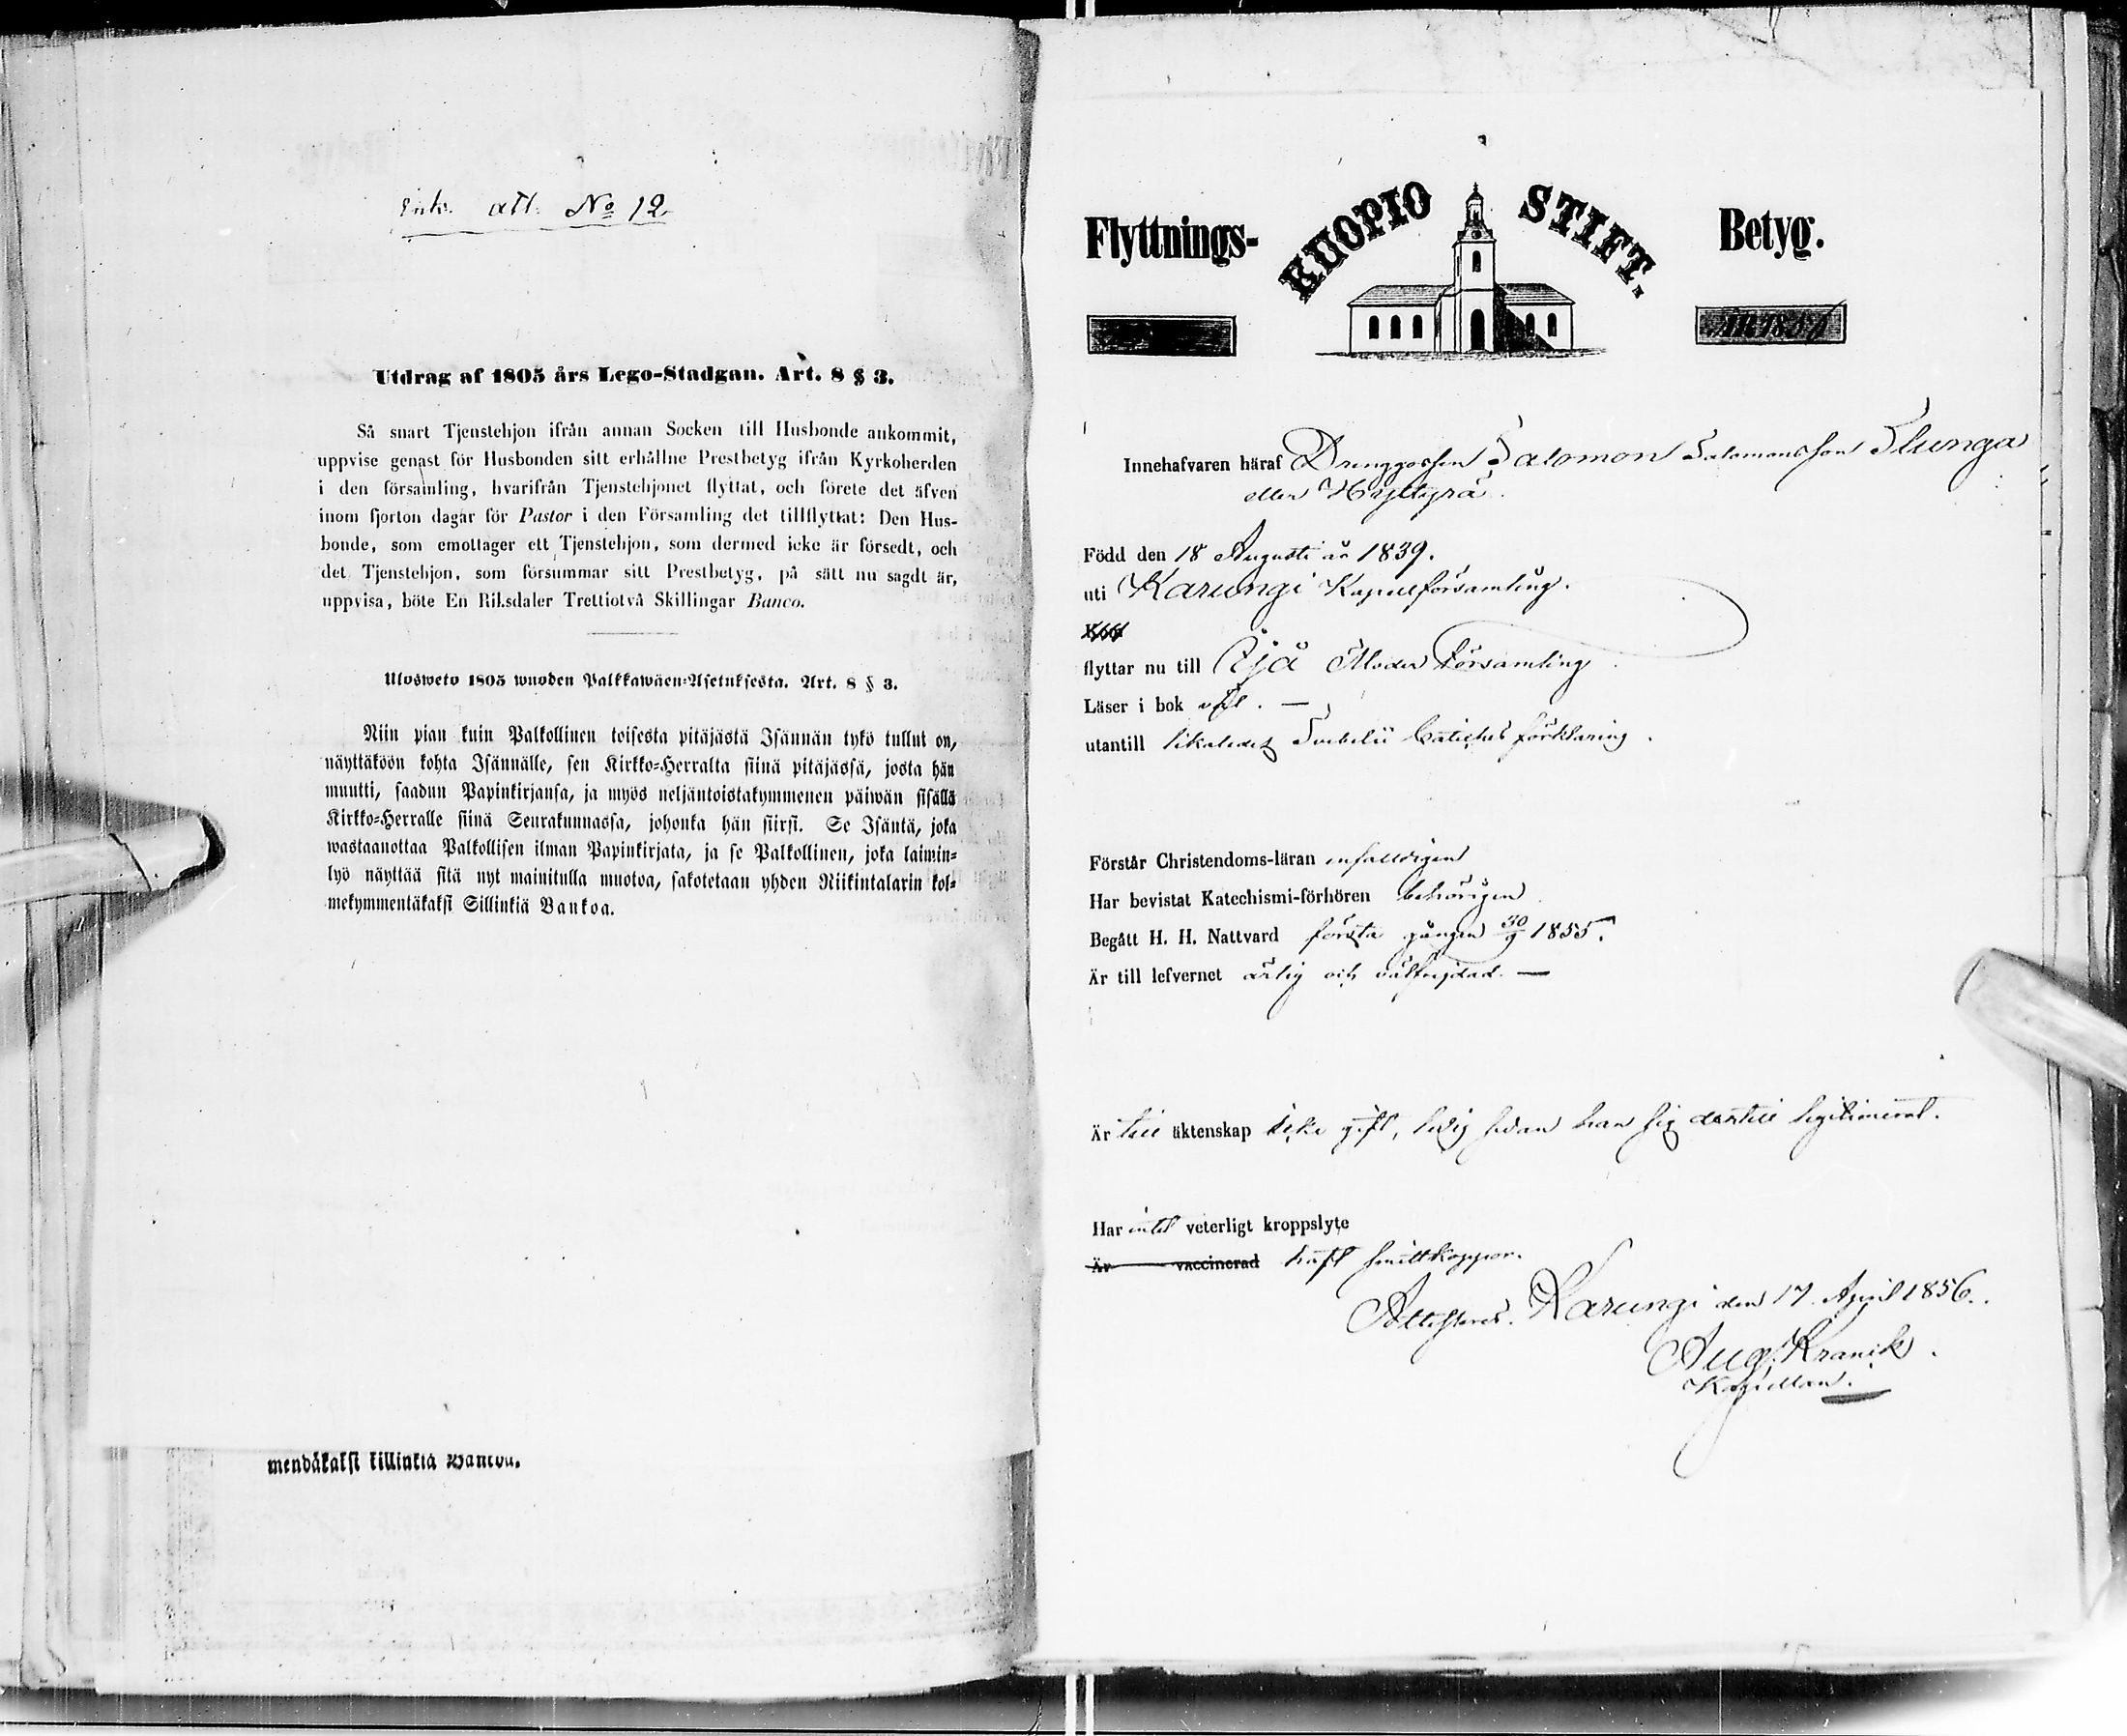 Ink. att. No 12.
Utdrag af 1805 års Lego-Stadgan. Art. 8 § 3.
Så snart Tjenstehjon ifrån annan Socken till Husbonde ankommit,
uppvise genast för Husbonden sitt erhållne Prestbetyg ifrån Kyrkoherden
i den församling, hvarifrån Tjenstehjonet flyttat, och förete det äfven
inom fjorton dagar för Pastor i den Församling det tillflyttat: Den Hus-
bonde, som emottager ett Tjenstehjon, som dermed icke är försedt, och
det Tjenstehjon, som försummar sitt Prestbetyg, på sätt nu sagdt är,
uppvisa, böte En Riksdaler Trettiotvå Skillingar Banco.
Ulosweto 1805 wuoden Palkkawäen-Asetuksesta. Art. 8 § 3.
Niin pian kuin Palkollinen toisesta pitäjästä Isännän tykö tullut on,
näyttäköön kohta Isännälle, sen Kirkko-Herralta siinä pitäjässä, josta hän
muutti, saadun Papinkirjansa, ja myös neljäntoistakymmenen päiwän sisällä
Kirkko-Herralle siinä Seurakunnassa, johonka hän siirsi. Se Isäntä, joka
wastaanottaa Palkollisen ilman Papinkirjata, ja se Palkollinen, joka laimin-
lyö näyttää sitä nyt mainitulla muotoa, sakotetaan yhden Riikintalarin kol-
mekymmentäkaksi Sillinkiä Bankoa.
mendäkaksi killinkiä Bancoa.
Flyttnings- KUOPIO STIFT. Betyg.
ÅR 185
Innehafvaren häraf Drenggossen Salomon Salomonsson Slunga
eller
Född den 18 Augusti år 1839.
uti Karungi Kapellförsamling.
Kom
flyttar nu till Ijå Moder församling
Läser i bok väl. —
utantill likaledes Svebelii Cateches förklaring.
Förstår Christendoms-läran enfalldigen
Har bevistat Katechismi-förhören behörigen
Begått H. H. Nattvard första gången 30/9 1855.
Är till lefvernet ärlig och välfrejdad. —
Är till äktenskap icke gift, ledig sedan han sig dertill legitimerat.
Har intet veterligt kroppslyte
Är vaccinerad haft smittkoppor.
Attesterar. Karungi den 17 April 1856.
Aug. Kranck.
Kapellan.